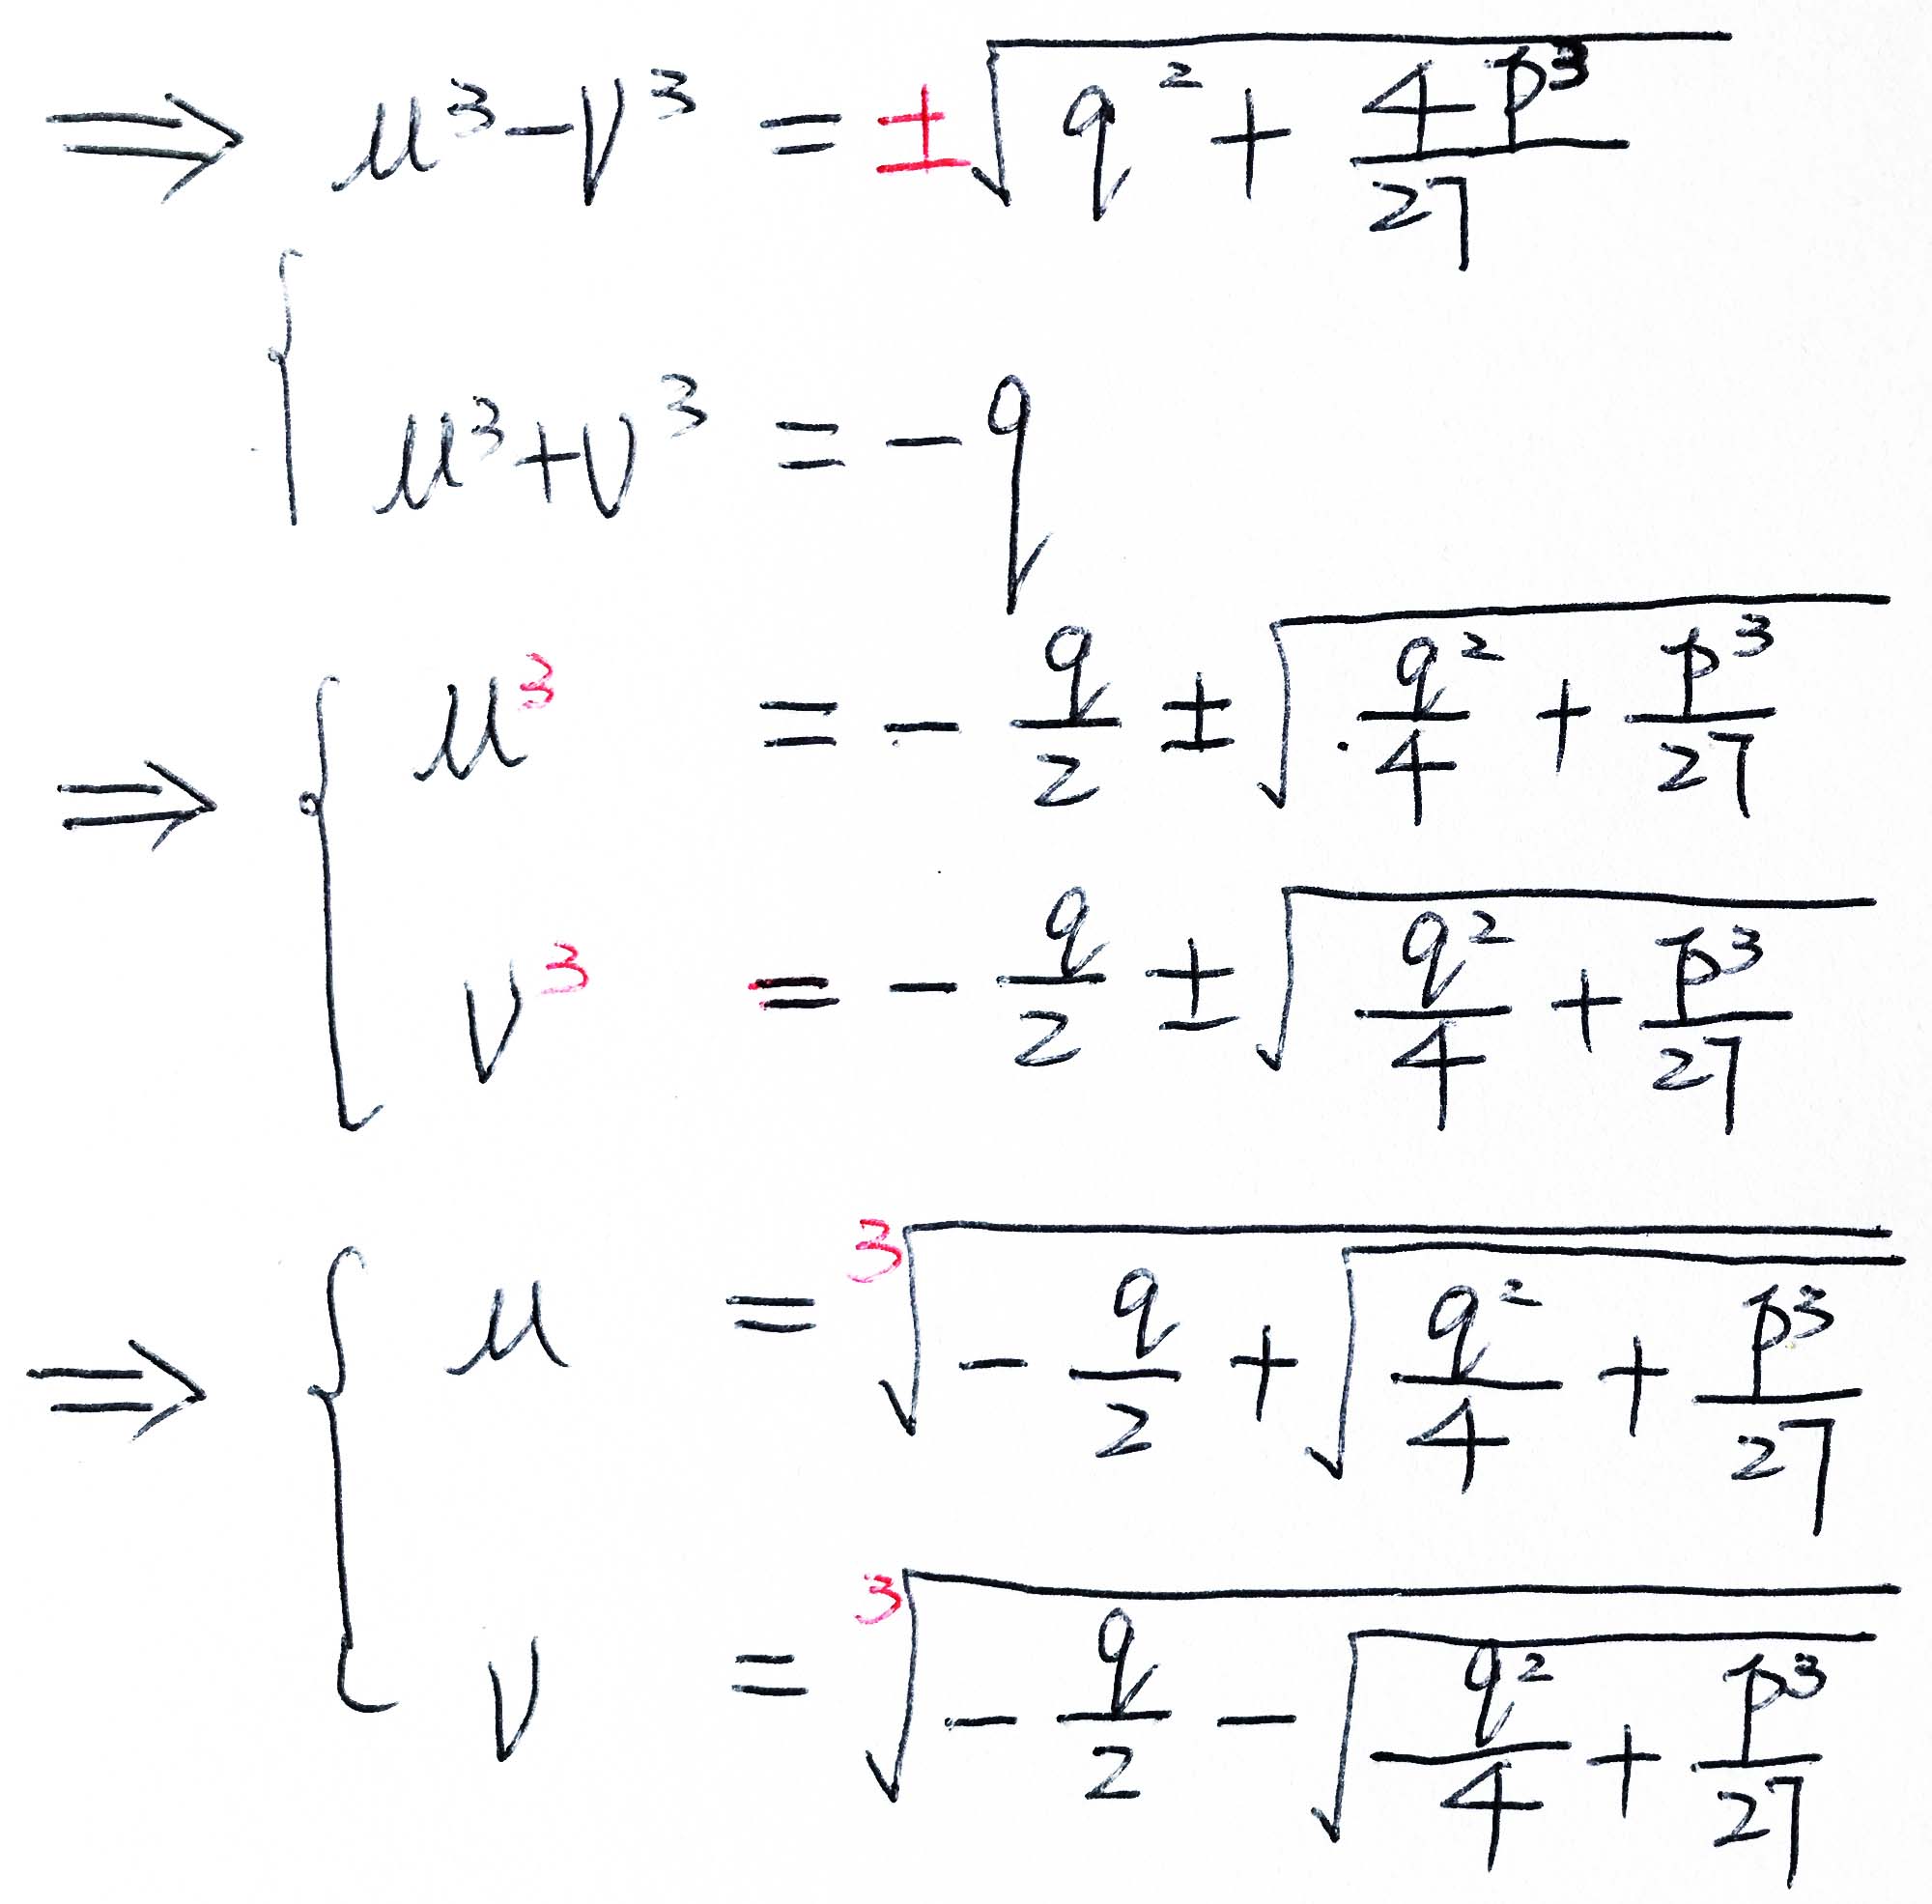 ⇒ μ³ - ν³ = ±√(q² + 4p³/27)
{ μ³ + ν³ = -q
⇒ { μ³ = - q/2 ± √(q²/4 + p³/27)
ν³ = - q/2 ± √(q²/4 + p³/27)
⇒ { μ = ³√(- q/2 + √(q²/4 + p³/27))
ν = ³√(- q/2 - √(q²/4 + p³/27))